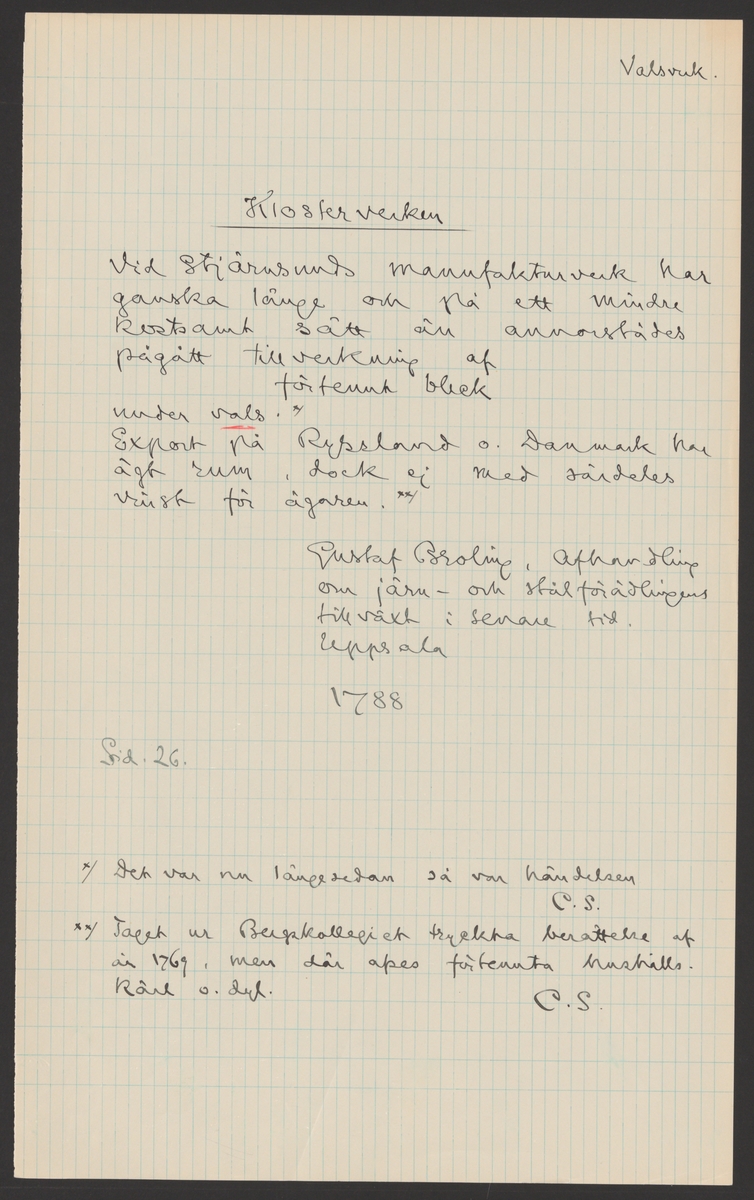 Valsverk.
Klosterverken
Vid Stjärnsunds manufakturverk har
ganska länge och på ett mindre
kostsamt sätt än annorstädes
pågått tillverkning af
förtennt bleck
under vals. */
Export på Ryssland o. Danmark har
ägt rum, dock ej med särdeles
vinst för ägaren. **/
Gustaf Broling, Afhandling
om järn- och stålförädlingens
tillväxt i senare tid.
Uppsala
1788
Sid. 26.
*/ Det var nu längesedan så var händelsen
C. S.
**/ Taget ur Bergskollegiet tryckta berättelse af
år 1769, men där apes förtennta hushålls-
kärl o. dyl.
C. S.